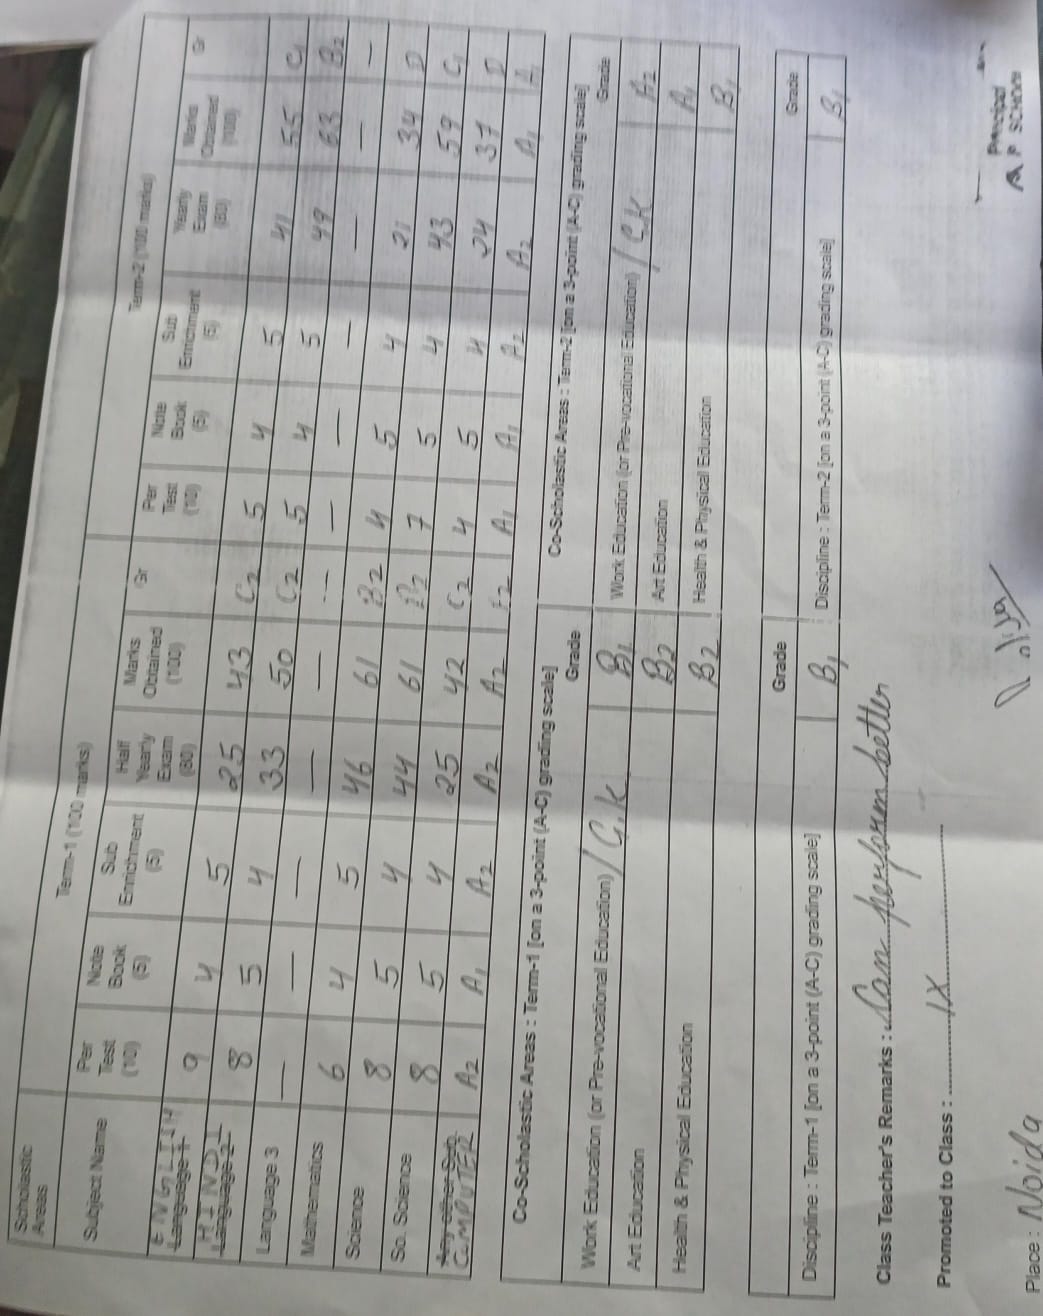 Scholastic Areas Term-1 (100 marks) Term-2 (100 marks)
Subject Name Per Test (10) Note Book (5) Sub Enrichment (5) Half Yearly Exam (80) Marks Obtained (100) Gr Per Test (10) Note Book (5) Sub Enrichment (5) Yearly Exam (80) Marks Obtained (100) Gr
ENGLISH Language 1 9 4 5 25 43 C2 5 4 5 41 55 C1
HINDI Language 2 8 5 4 33 50 C2 5 4 5 49 63 B2
Language 3 — — — — — — — — — — — —
Mathematics 6 4 5 46 61 B2 4 5 4 21 34 D
Science 8 5 4 44 61 B2 7 5 4 43 59 C1
So. Science 8 5 4 25 42 C2 4 5 4 24 37 D
Any other Sub. COMPUTER A2 A1 A2 A2 A2 A1 A1 A2 A2 A1 A1
Co-Scholastic Areas : Term-1 [on a 3-point (A-C) grading scale] Co-Scholastic Areas : Term-2 [on a 3-point (A-C) grading scale]
Grade Grade
Work Education (or Pre-vocational Education) / G.K B1 Work Education (or Pre-vocational Education) / G.K A2
Art Education B2 Art Education A1
Health & Physical Education B2 Health & Physical Education B1
Grade Grade
Discipline : Term-1 [on a 3-point (A-C) grading scale] B1 Discipline : Term-2 [on a 3-point (A-C) grading scale] B1
Class Teacher's Remarks : Can perform better
Promoted to Class : IX
Principal
P SCHOOL
Place : Noida